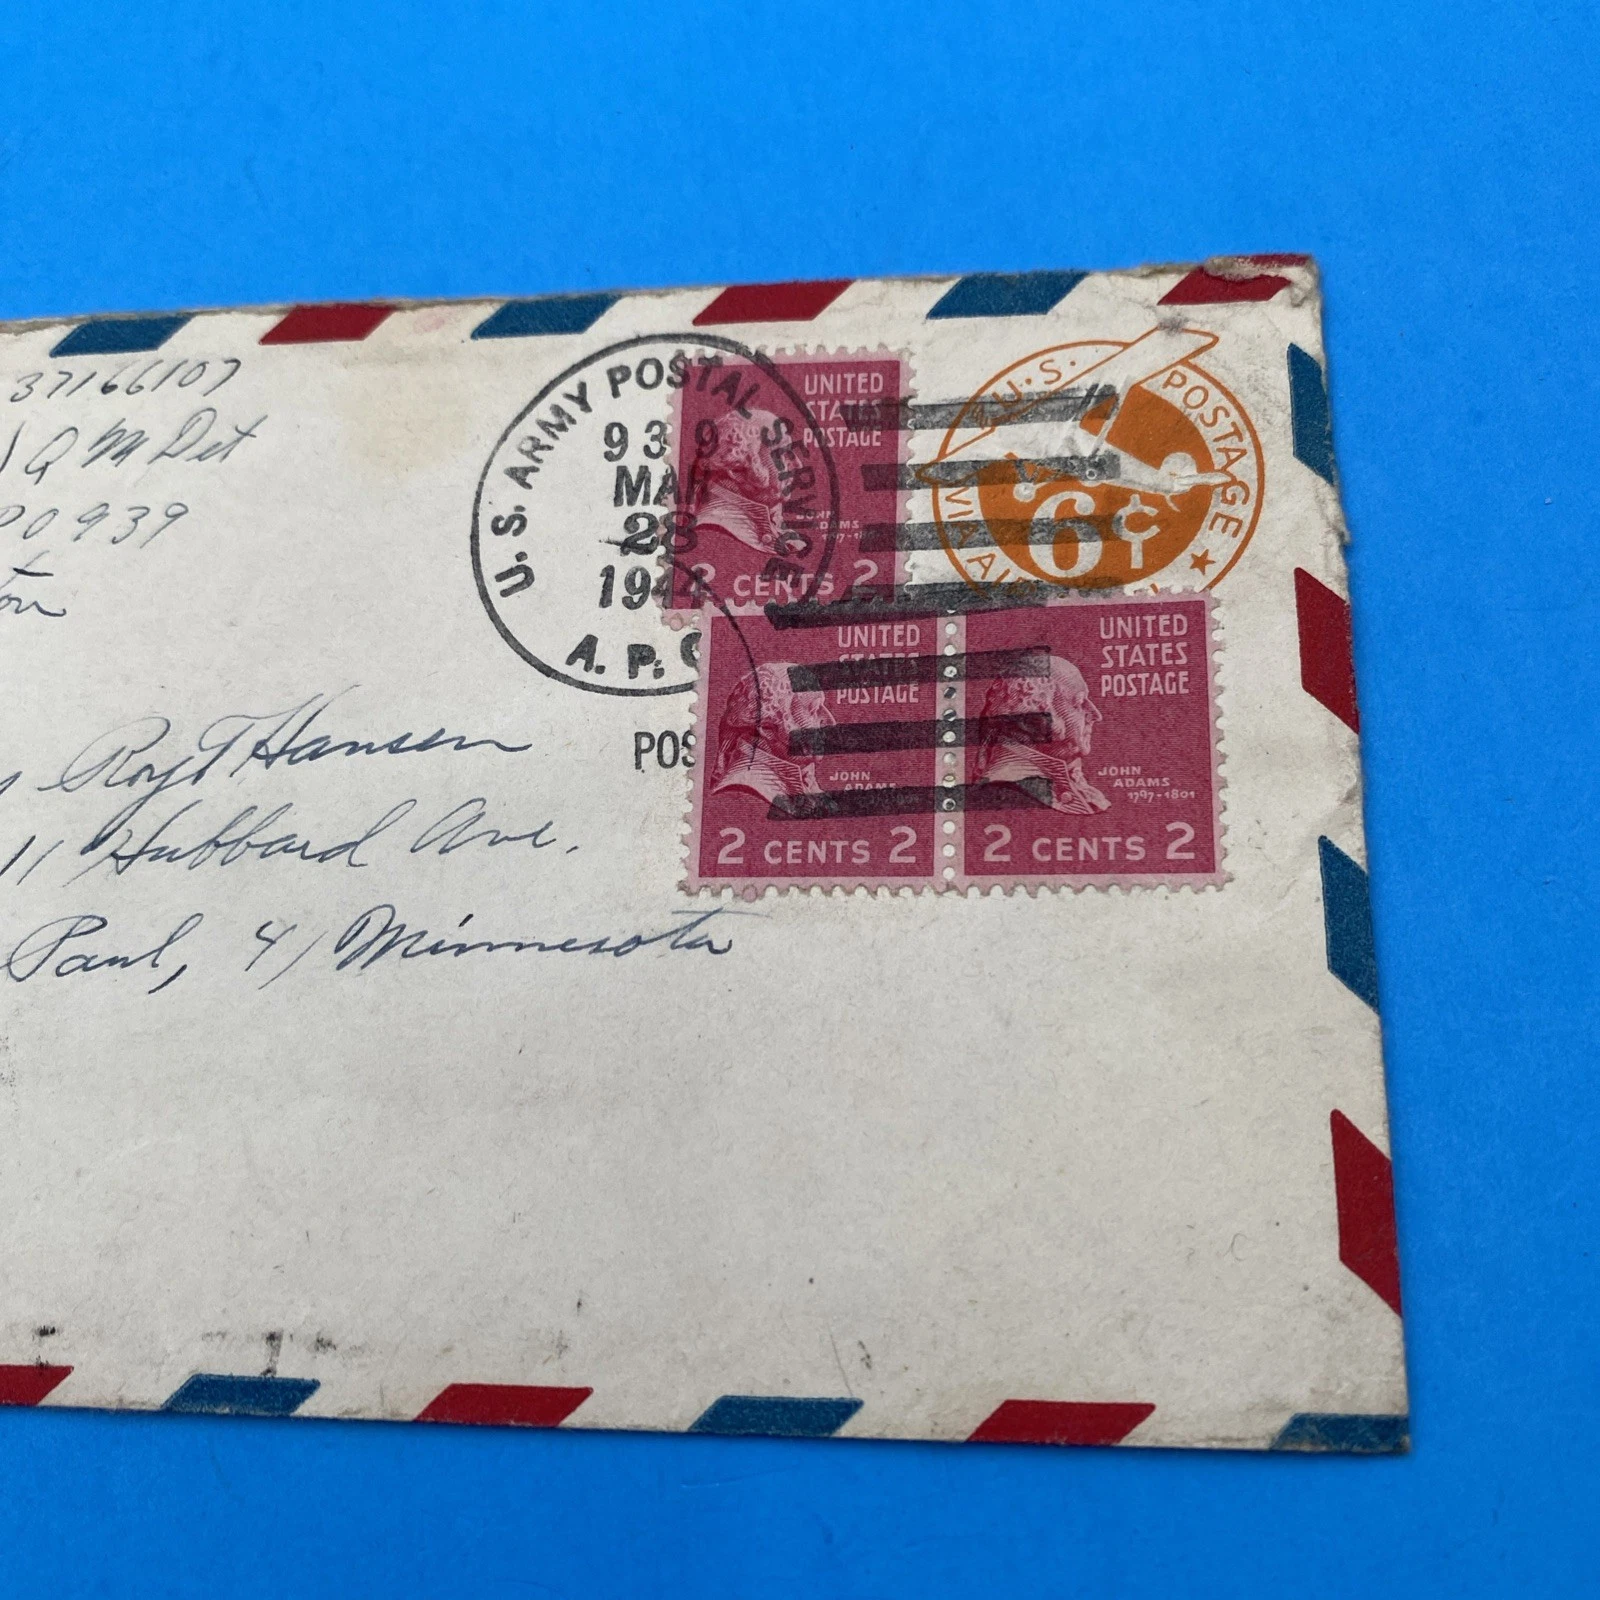 37166107
Q M Det
PO 939
ton
Roy T Hansen
11 Hubbard Ave.
Paul, 4, Minnesota
U.S. ARMY POSTAL SERVICE
939
MAR
28
1944
A. P.
POS
UNITED
STATES
POSTAGE
JOHN
ADAMS
1797-18
2 CENTS 2
U.S. POSTAGE
VIA AIR
6¢
UNITED
STATES
POSTAGE
JOHN
ADAMS
1797-1801
2 CENTS 2
UNITED
STATES
POSTAGE
JOHN
ADAMS
1797-1801
2 CENTS 2